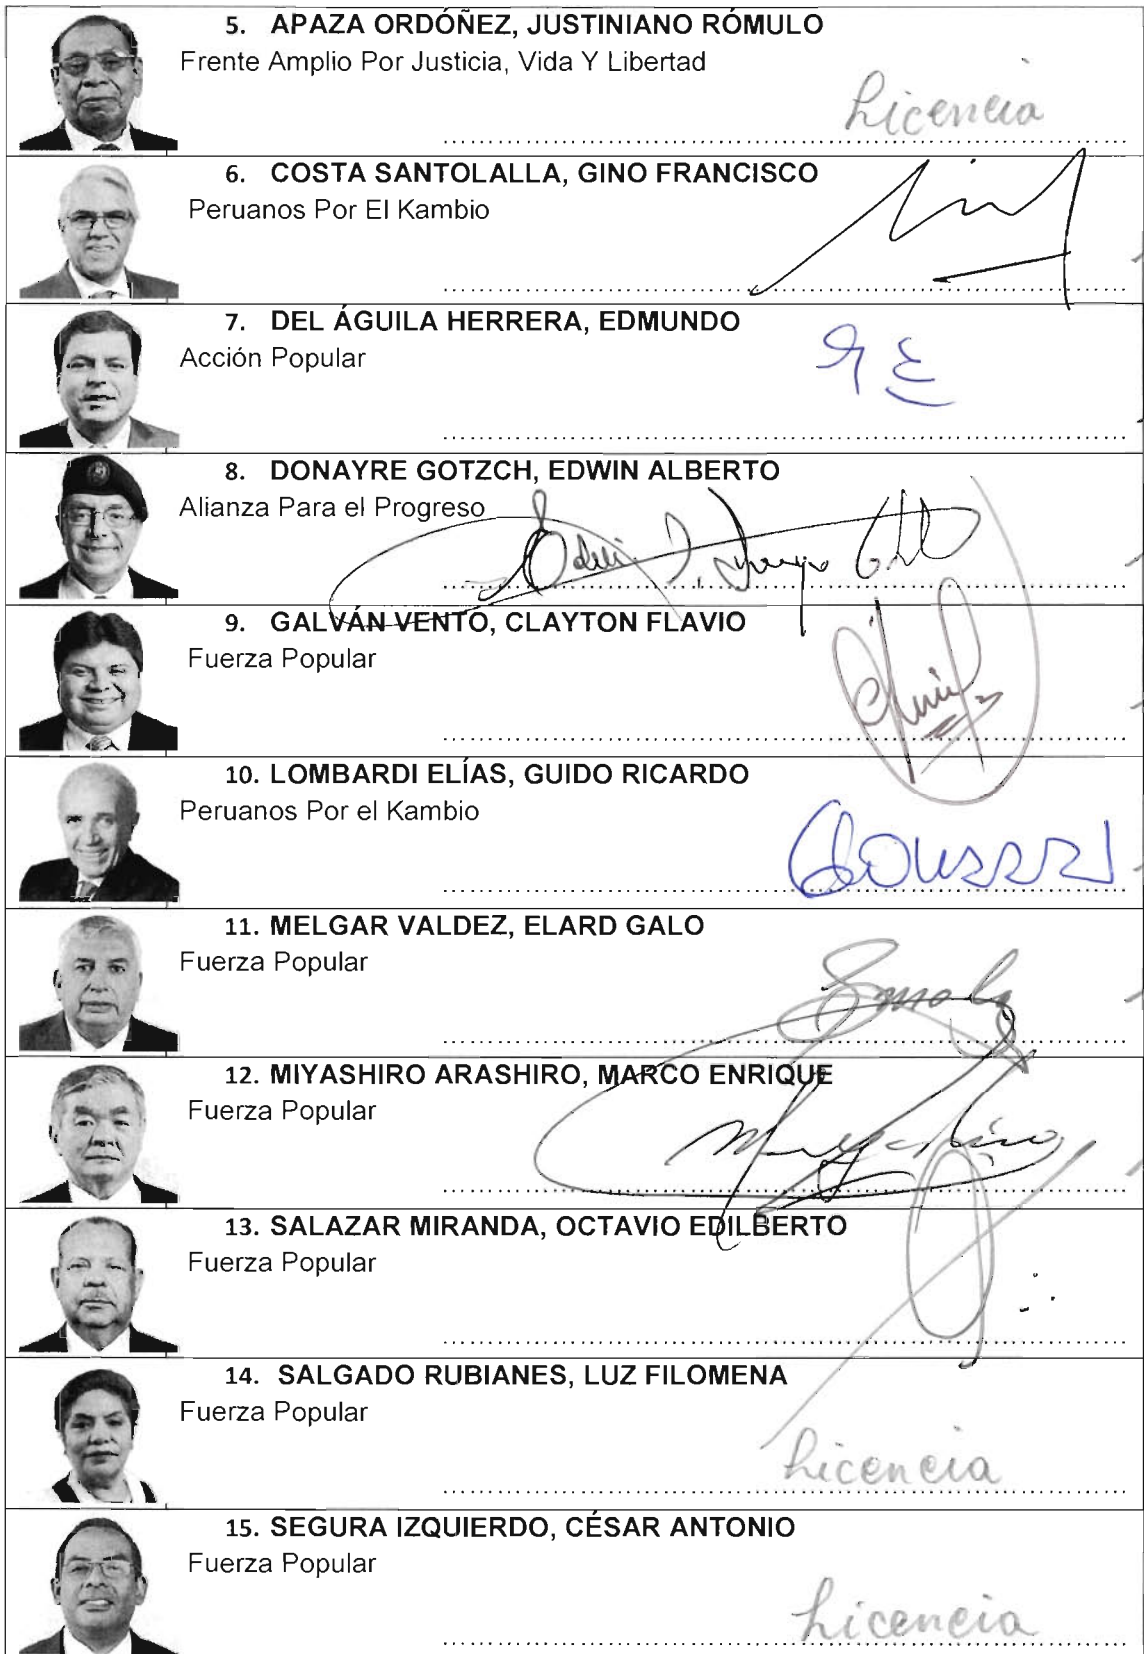 5. APAZA ORDÓÑEZ, JUSTINIANO RÓMULO
Frente Amplio Por Justicia, Vida Y Libertad
Licencia
6. COSTA SANTOLALLA, GINO FRANCISCO
Peruanos Por El Kambio
7. DEL ÁGUILA HERRERA, EDMUNDO
Acción Popular
8. DONAYRE GOTZCH, EDWIN ALBERTO
Alianza Para el Progreso
9. GALVÁN VENTO, CLAYTON FLAVIO
Fuerza Popular
10. LOMBARDI ELÍAS, GUIDO RICARDO
Peruanos Por el Kambio
11. MELGAR VALDEZ, ELARD GALO
Fuerza Popular
12. MIYASHIRO ARASHIRO, MARCO ENRIQUE
Fuerza Popular
13. SALAZAR MIRANDA, OCTAVIO EDILBERTO
Fuerza Popular
14. SALGADO RUBIANES, LUZ FILOMENA
Fuerza Popular
Licencia
15. SEGURA IZQUIERDO, CÉSAR ANTONIO
Fuerza Popular
Licencia